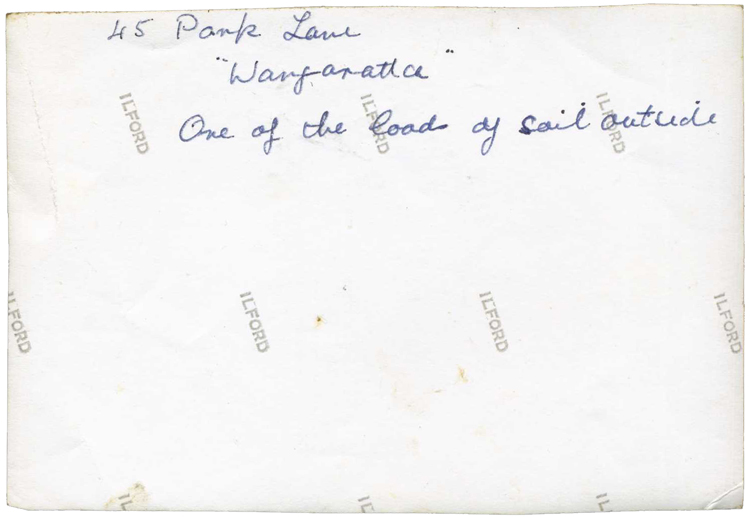 45 Park Lane
"Wangaratta"
One of the loads of soil outside
ILFORD ILFORD ILFORD
ILFORD ILFORD ILFORD ILFORD
IL IL IL